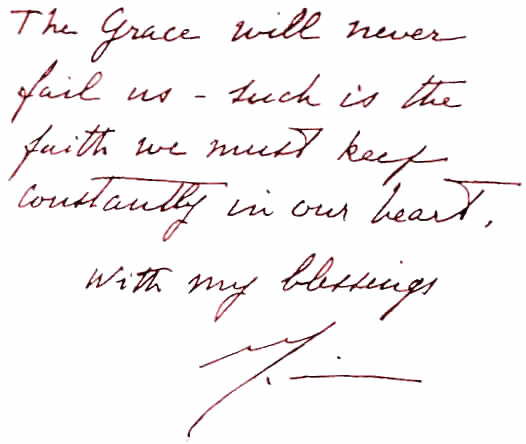 The Grace will never
fail us - such is the
faith we must keep
constantly in our heart.
with my blessings